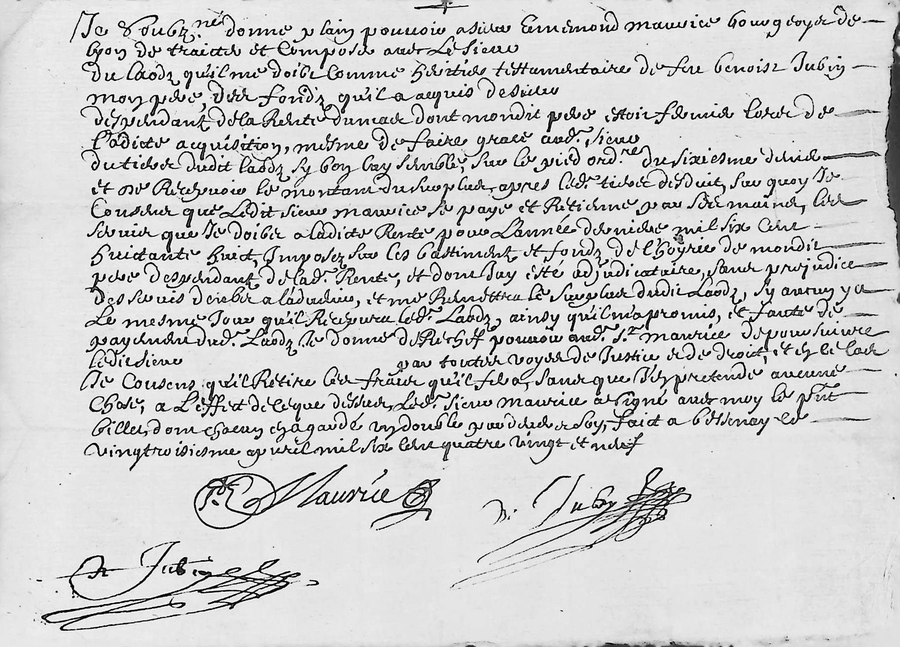 Je Soubz.né donne plain pouvoir a sieur Ennemond Maurice bourgeoys de
Lyon de traicter et Composer avec Le Sieur
du Laodz qu'il me doibt Comme heritier testamentaire de feu benoist Jubin
mon pere, des fondz qu'il a acquis de sieur
despendant de la Rente dont mondit pere estoit fermier lors de
Ladicte acquisition, mesme de faire grace aud. sieur
du tiers dudit laodz sy bon luy semble, sur le pied ord.re du sixiesme denier
et de Recepvoir le montant du surplus, apres led. tiers desduit, sur quoy Je
Consens que Ledit sieur Maurice se paye et Retienne par ses mains, les
servis que Je doibs a ladicte Rente pour L'année derniere mil six Cent
huictante huict, Imposez sur les bastiment et fondz de L'hoyrie de mondit
pere despendant de lad. Rente, et dont J'ay esté adjudicataire, sans prejudice
des servis deubs a l'advenir, et me Remettra le surplus dudit Laodz, sy aucun y a
Le mesme Jour qu'il Recepvra led. Laodz, ainsy qu'il m'a promis, et faute de
payement dud. Laodz Je donne de Rechef pouvoir aud. S.r Maurice de poursuivre
ledit sieur par toutes voyes de Justice et de droit, et en le cas
Je Consens qu'il Retire les fraix qu'il fera, sans que J'y pretende aucune
Chose, a L'effet de ce que dessus, Led. sieur Maurice a signé avec moy le p.nt
billet, dont chacun en a gardé un double par devers soy, fait a bessenay le
vingtroisiesme apvril mil six Cent quatre vingt et neuf
Maurice
Jubin
Jubin